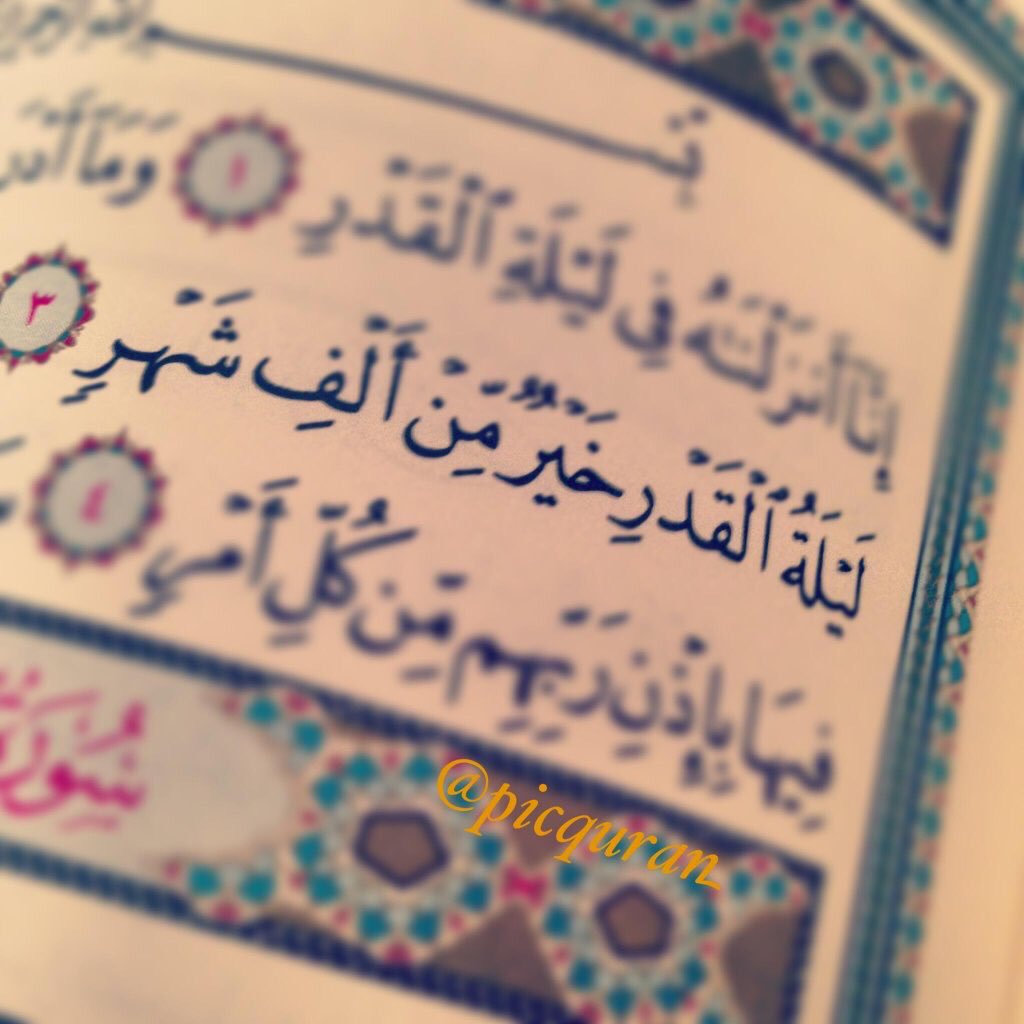 بِسْـ ـمِ ٱللَّهِ ٱلرَّحْمَٰنِ
إِنَّآ أَنزَلْنَٰهُ فِى لَيْلَةِ ٱلْقَدْرِ ١ وَمَآ أَدْرَ
لَيْلَةُ ٱلْقَدْرِ خَيْرٌ مِّنْ أَلْفِ شَهْرٍ ٣
فِيهَا بِإِذْنِ رَبِّهِم مِّن كُلِّ أَمْرٍ ٤
سُورَةُ
@picquran